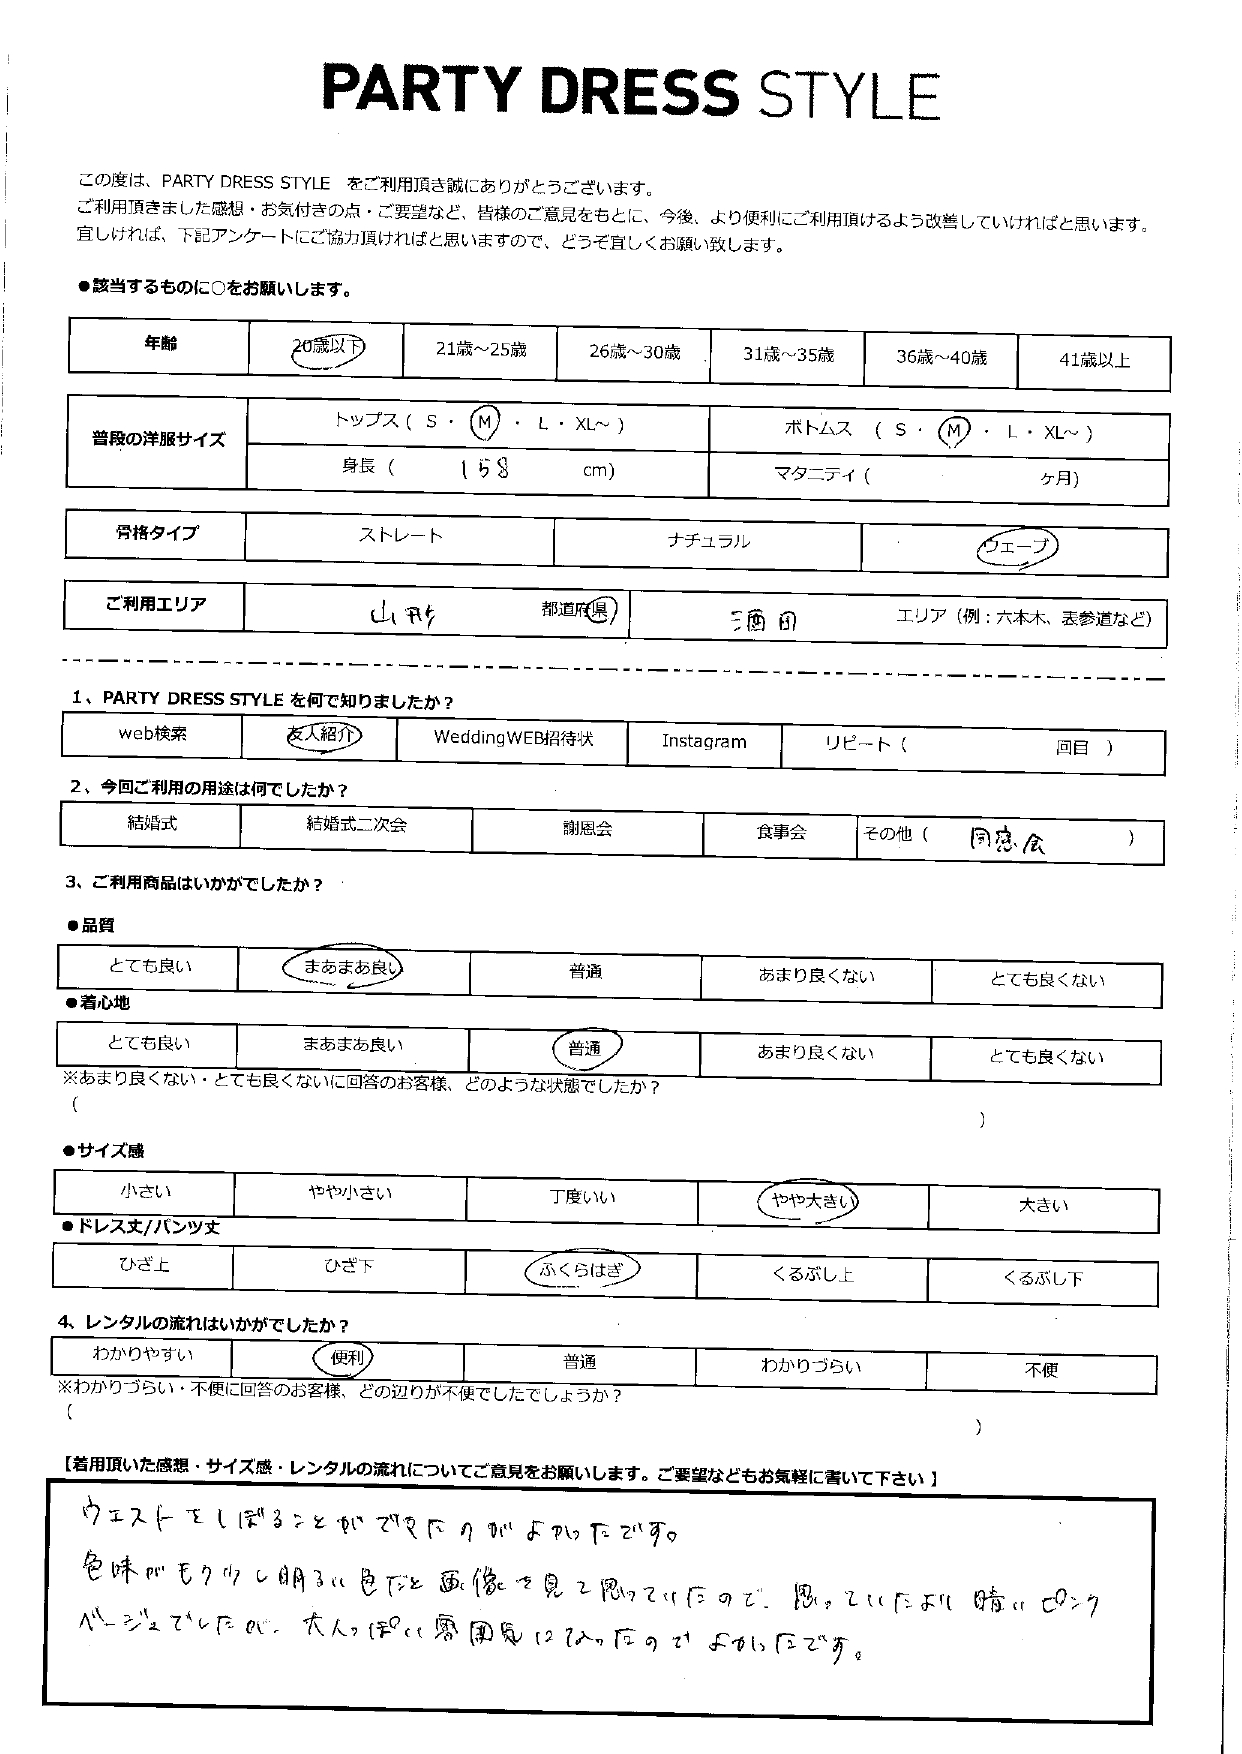 PARTY DRESS STYLE
この度は、PARTY DRESS STYLE をご利用頂き誠にありがとうございます。
ご利用頂きました感想・お気付きの点・ご要望など、皆様のご意見をもとに、今後、より便利にご利用頂けるよう改善していければと思います。
宜しければ、下記アンケートにご協力頂ければと思いますので、どうぞ宜しくお願い致します。
●該当するものに○をお願いします。
年齢 20歳以下 21歳～25歳 26歳～30歳 31歳～35歳 36歳～40歳 41歳以上
普段の洋服サイズ トップス ( S ・ M ・ L ・ XL～ ) ボトムス ( S ・ M ・ L ・ XL～ )
身長 ( 158 cm) マタニティ ( ヶ月)
骨格タイプ ストレート ナチュラル ウェーブ
ご利用エリア 山形 都道府県 酒田 エリア（例：六本木、表参道など）
1、PARTY DRESS STYLE を何で知りましたか？
web検索 友人紹介 WeddingWEB招待状 Instagram リピート ( 回目 )
2、今回ご利用の用途は何でしたか？
結婚式 結婚式二次会 謝恩会 食事会 その他 ( 同窓会 )
3、ご利用商品はいかがでしたか？
●品質
とても良い まあまあ良い 普通 あまり良くない とても良くない
●着心地
とても良い まあまあ良い 普通 あまり良くない とても良くない
※あまり良くない・とても良くないに回答のお客様、どのような状態でしたか？
( )
●サイズ感
小さい やや小さい 丁度いい やや大きい 大きい
●ドレス丈/パンツ丈
ひざ上 ひざ下 ふくらはぎ くるぶし上 くるぶし下
4、レンタルの流れはいかがでしたか？
わかりやすい 便利 普通 わかりづらい 不便
※わかりづらい・不便に回答のお客様、どの辺りが不便でしたでしょうか？
( )
【着用頂いた感想・サイズ感・レンタルの流れについてご意見をお願いします。ご要望などもお気軽に書いて下さい 】
ウエストをしぼることができたのがよかったです。
色味がもう少し明るい色だと画像を見て思っていたので、思っていたより暗いピンク
ベージュでしたが、大人っぽい雰囲気になったのでよかったです。